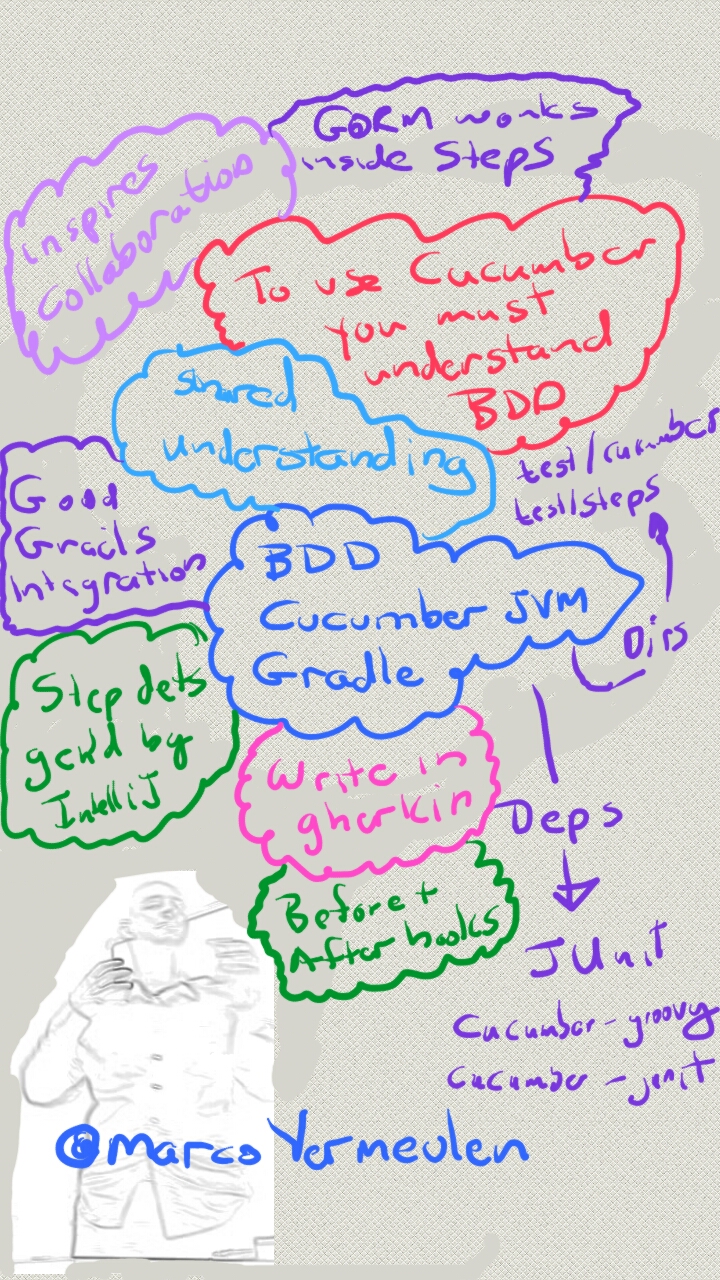 GORM works
inside Steps
inspires
collaboration
To use Cucumber
you must
understand
BDD
shared
understanding
test/cucumber
test/steps
Good
Grails
Integration
BDD
Cucumber JVM
Gradle
Dirs
Step defs
gen'd by
IntelliJ
Write in
gherkin
Deps
Before +
After hooks
JUnit
Cucumber-groovy
cucumber-junit
@MarcoVermeulen